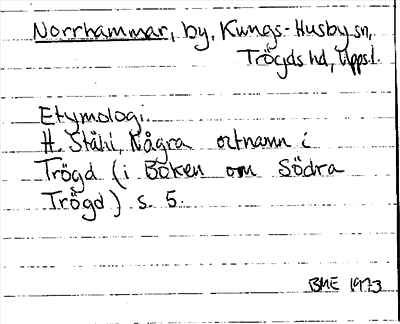 Norrhammar, by, Kungs-Husby sn,
Trögds hd, Uppsl.
Etymologi.
H. Ståhl, Några ortnamn i
Trögd (i Boken om Södra
Trögd) s. 5.
BME 1973